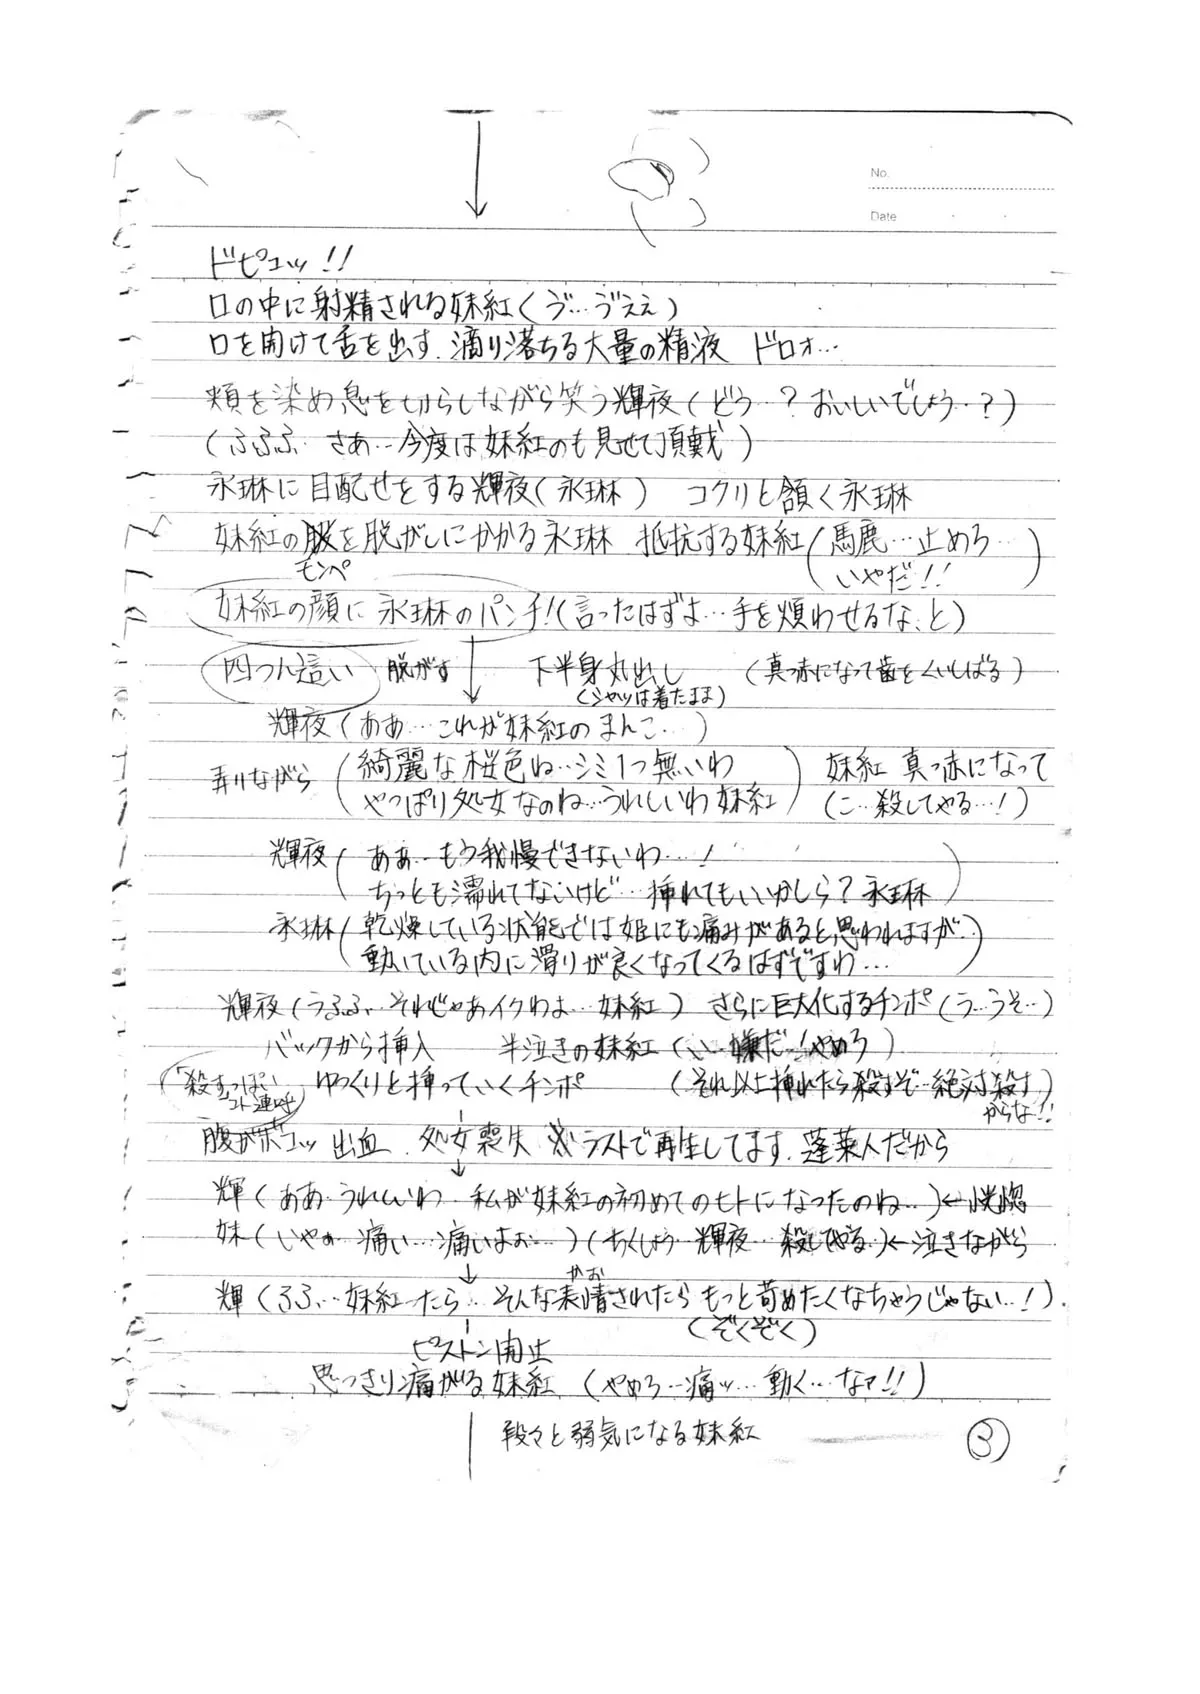 No.
Date
ドピュッ!!
口の中に射精される妹紅(ゔ…ゔえぇ)
口を開けて舌を出す.滴り落ちる大量の精液 ドロォ…
頬を染め息を切らしながら笑う輝夜(どう…?おいしいでしょう…?)
(ふふふ…さあ…今度は妹紅のも見せて頂戴)
永琳に目配せをする輝夜(永琳) コクリと頷く永琳
妹紅の服を脱がしにかかる永琳 抵抗する妹紅(馬鹿…止めろ…
モンペ いやだ!!)
妹紅の顔に永琳のパンチ!(言ったはずよ…手を煩わせるな、と)
四つん這い 脱がす 下半身丸出し (真っ赤になって歯をくいしばる)
(シャツは着たまま)
輝夜(ああ…これが妹紅のまんこ…)
弄りながら(綺麗な桜色ね…シミ1つ無いわ 妹紅 真っ赤になって
やっぱり処女なのね…うれしいわ妹紅) (こ…殺してやる…!)
輝夜(ああ…もう我慢できないわ…!
ちっとも濡れてないけど…挿れてもいいかしら?永琳)
永琳(乾燥している状態では姫にも痛みがあると思われますが…
動いている内に滑りが良くなってくるはずですわ…)
輝夜(うふふ…それじゃあイクわよ…妹紅) さらに巨大化するチンポ(う…うそ…)
バックから挿入 半泣きの妹紅(い…嫌だ…!やめろ)
(「殺す」っぽい ゆっくりと挿っていくチンポ (それ以上挿れたら殺すぞ…絶対殺す
コト連呼) からな!!)
腹がボコッ 出血 処女喪失 ※ラストで再生してます.蓬莱人だから
輝(ああ…うれしいわ…私が妹紅の初めてのヒトになったのね…)←恍惚
妹(いやぁ…痛い…痛いよぉ…)(ちくしょう…輝夜…殺してやる…)←泣きながら
かお
輝(ふふ…妹紅ったら…そんな表情されたらもっと苛めたくなちゃうじゃない…!)
(ぞくぞく)
ピストン開始
思っきり痛がる妹紅 (やめろ…痛ッ…動く…なァ!!)
段々と弱気になる妹紅
③